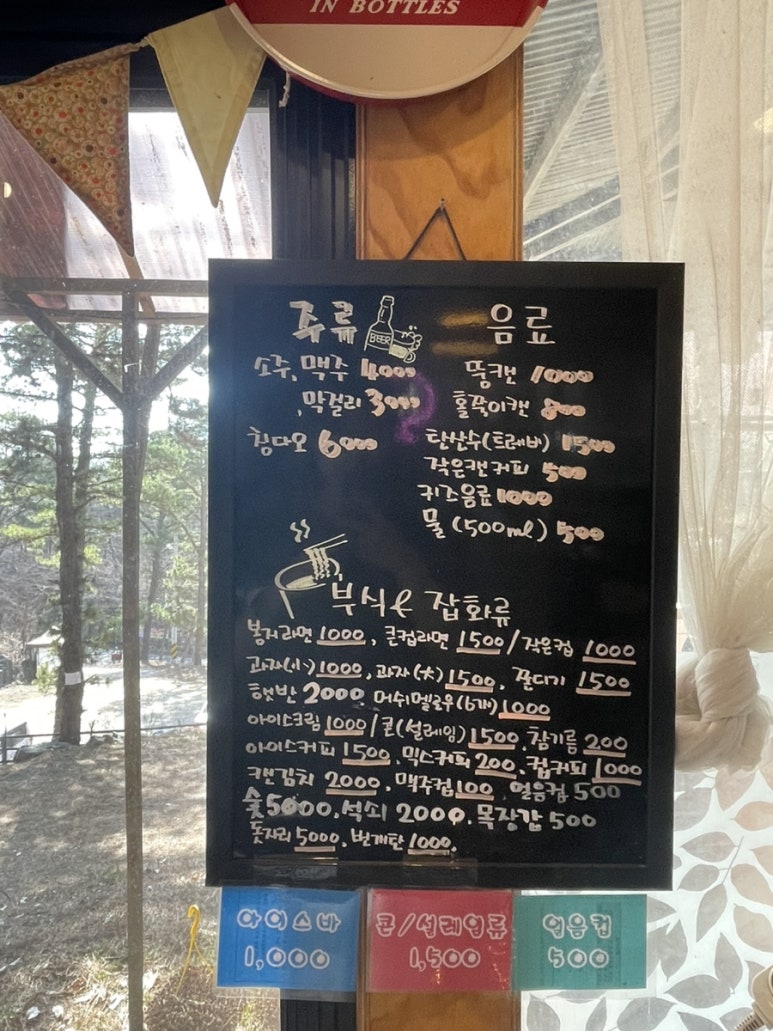 IN BOTTLES
주류 BEER 음료
소주, 맥주 4000
,막걸리 3000
칭다오 6000
뚱캔 1000
홀쭉이캔 800
탄산수(트레비) 1500
작은캔커피 500
키즈음료 1000
물 (500ml) 500
부식 & 잡화류
봉지라면 1000, 큰컵라면 1500 / 작은컵 1000
과자(小) 1000, 과자(大) 1500, 쫀디기 1500
햇반 2000 머쉬멜로우(6개) 1000
아이스크림 1000 / 콘(설레임) 1500, 참기름 200
아이스커피 1500, 믹스커피 200, 컵커피 1000
캔김치 2000, 맥주컵 100, 얼음컵 500
숯 5000, 석쇠 2000, 목장갑 500
돗자리 5000, 번개탄 1000,
아이스바
1,000
콘/설레임류
1,500
얼음컵
500